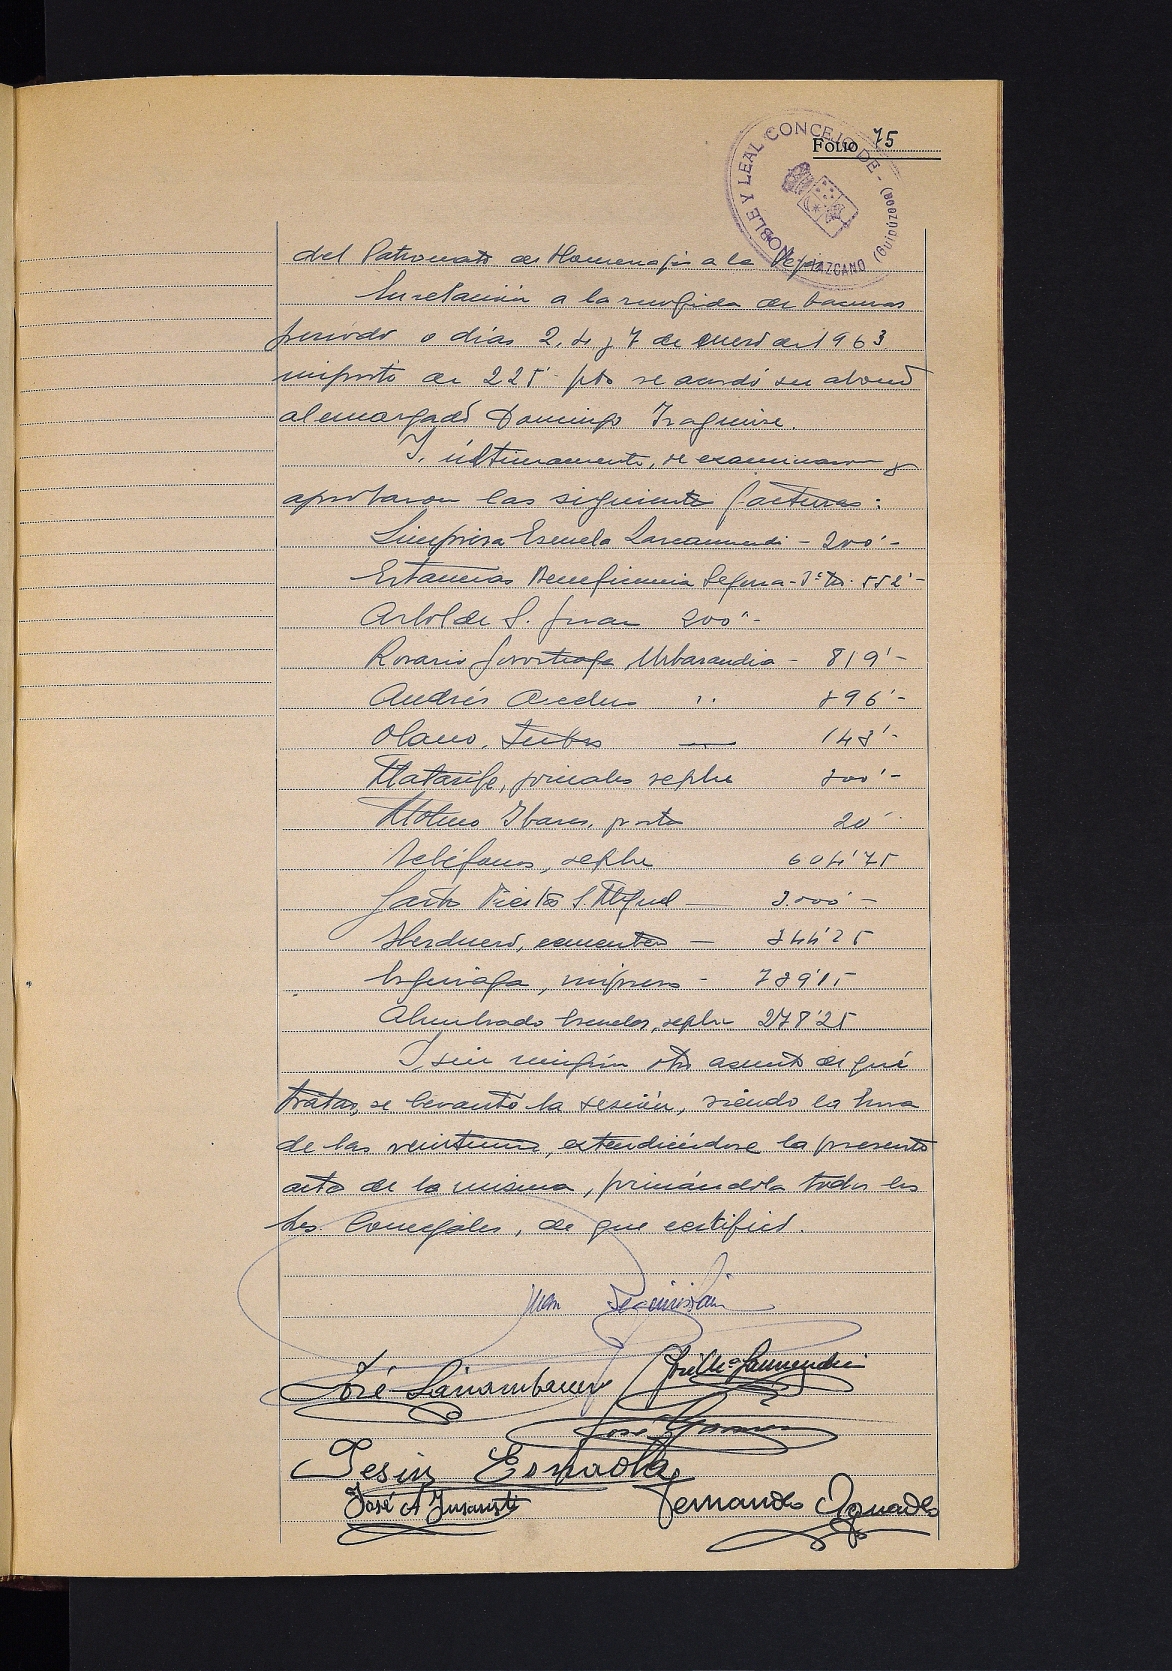 Folio 75
NOBLE Y LEAL CONCEJO DE LAZCANO (Guipúzcoa)
del Patronato de Homenaje a la Vejez.
En relación a la recogida de basuras
período o días 2, 4 y 7 de enero de 1963
importe de 225 pts se acordó su abono
al encargado Domingo Iraguirre.
Y, últimamente, se examinaron y
aprobaron las siguientes facturas:
Limpieza Escuela Lazcaomendi - 200'-
Estancias Beneficencia Segura - 3º Tr. 552'-
Arbol de S. Juan 200'-
Rosario Gorostiaga, Urbarandia - 819'-
Andrés 396'-
Olano, Tubos — 143'-
Matarife, jornales sepbre 300'-
Molino Ibares, porte 20'-
Teléfonos, sepbre 604'75
Gasto Fiestas S. Miguel — 3.000'-
Herduero, cementos — 344'25
impresos - 739'15
Alumbrado Escuelas, sepbre 278'25
Y sin ningún otro asunto de qué
tratar, se levantó la sesión, siendo la hora
de las veintiuna, extendiéndose la presente
acta de la misma, firmándola todos los
Srs Concejales, de que certifico.
Juan
José
José Mª
José
Jesús Esnaola
José A
Fernando Aguado